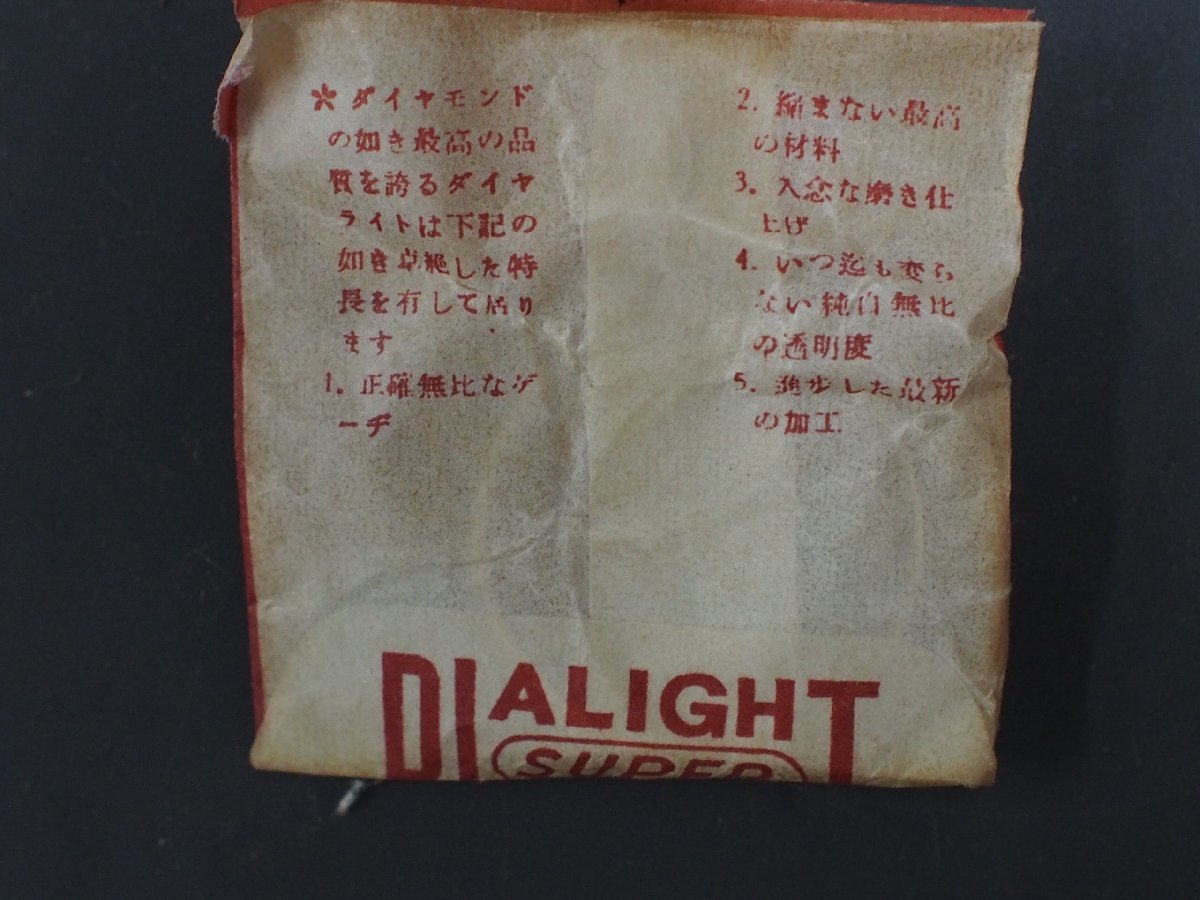 * ダイヤモンド
の如き最高の品
質を誇るダイヤ
ライトは下記の
如き卓絶した特
長を有して居り
ます
1. 正確無比なゲ
ーヂ
2. 縮まない最高
の材料
3. 入念な磨き仕
上げ
4. いつ迄も変ら
ない純白無比
の透明度
5. 進歩した最新
の加工
DIALIGHT
SUPER